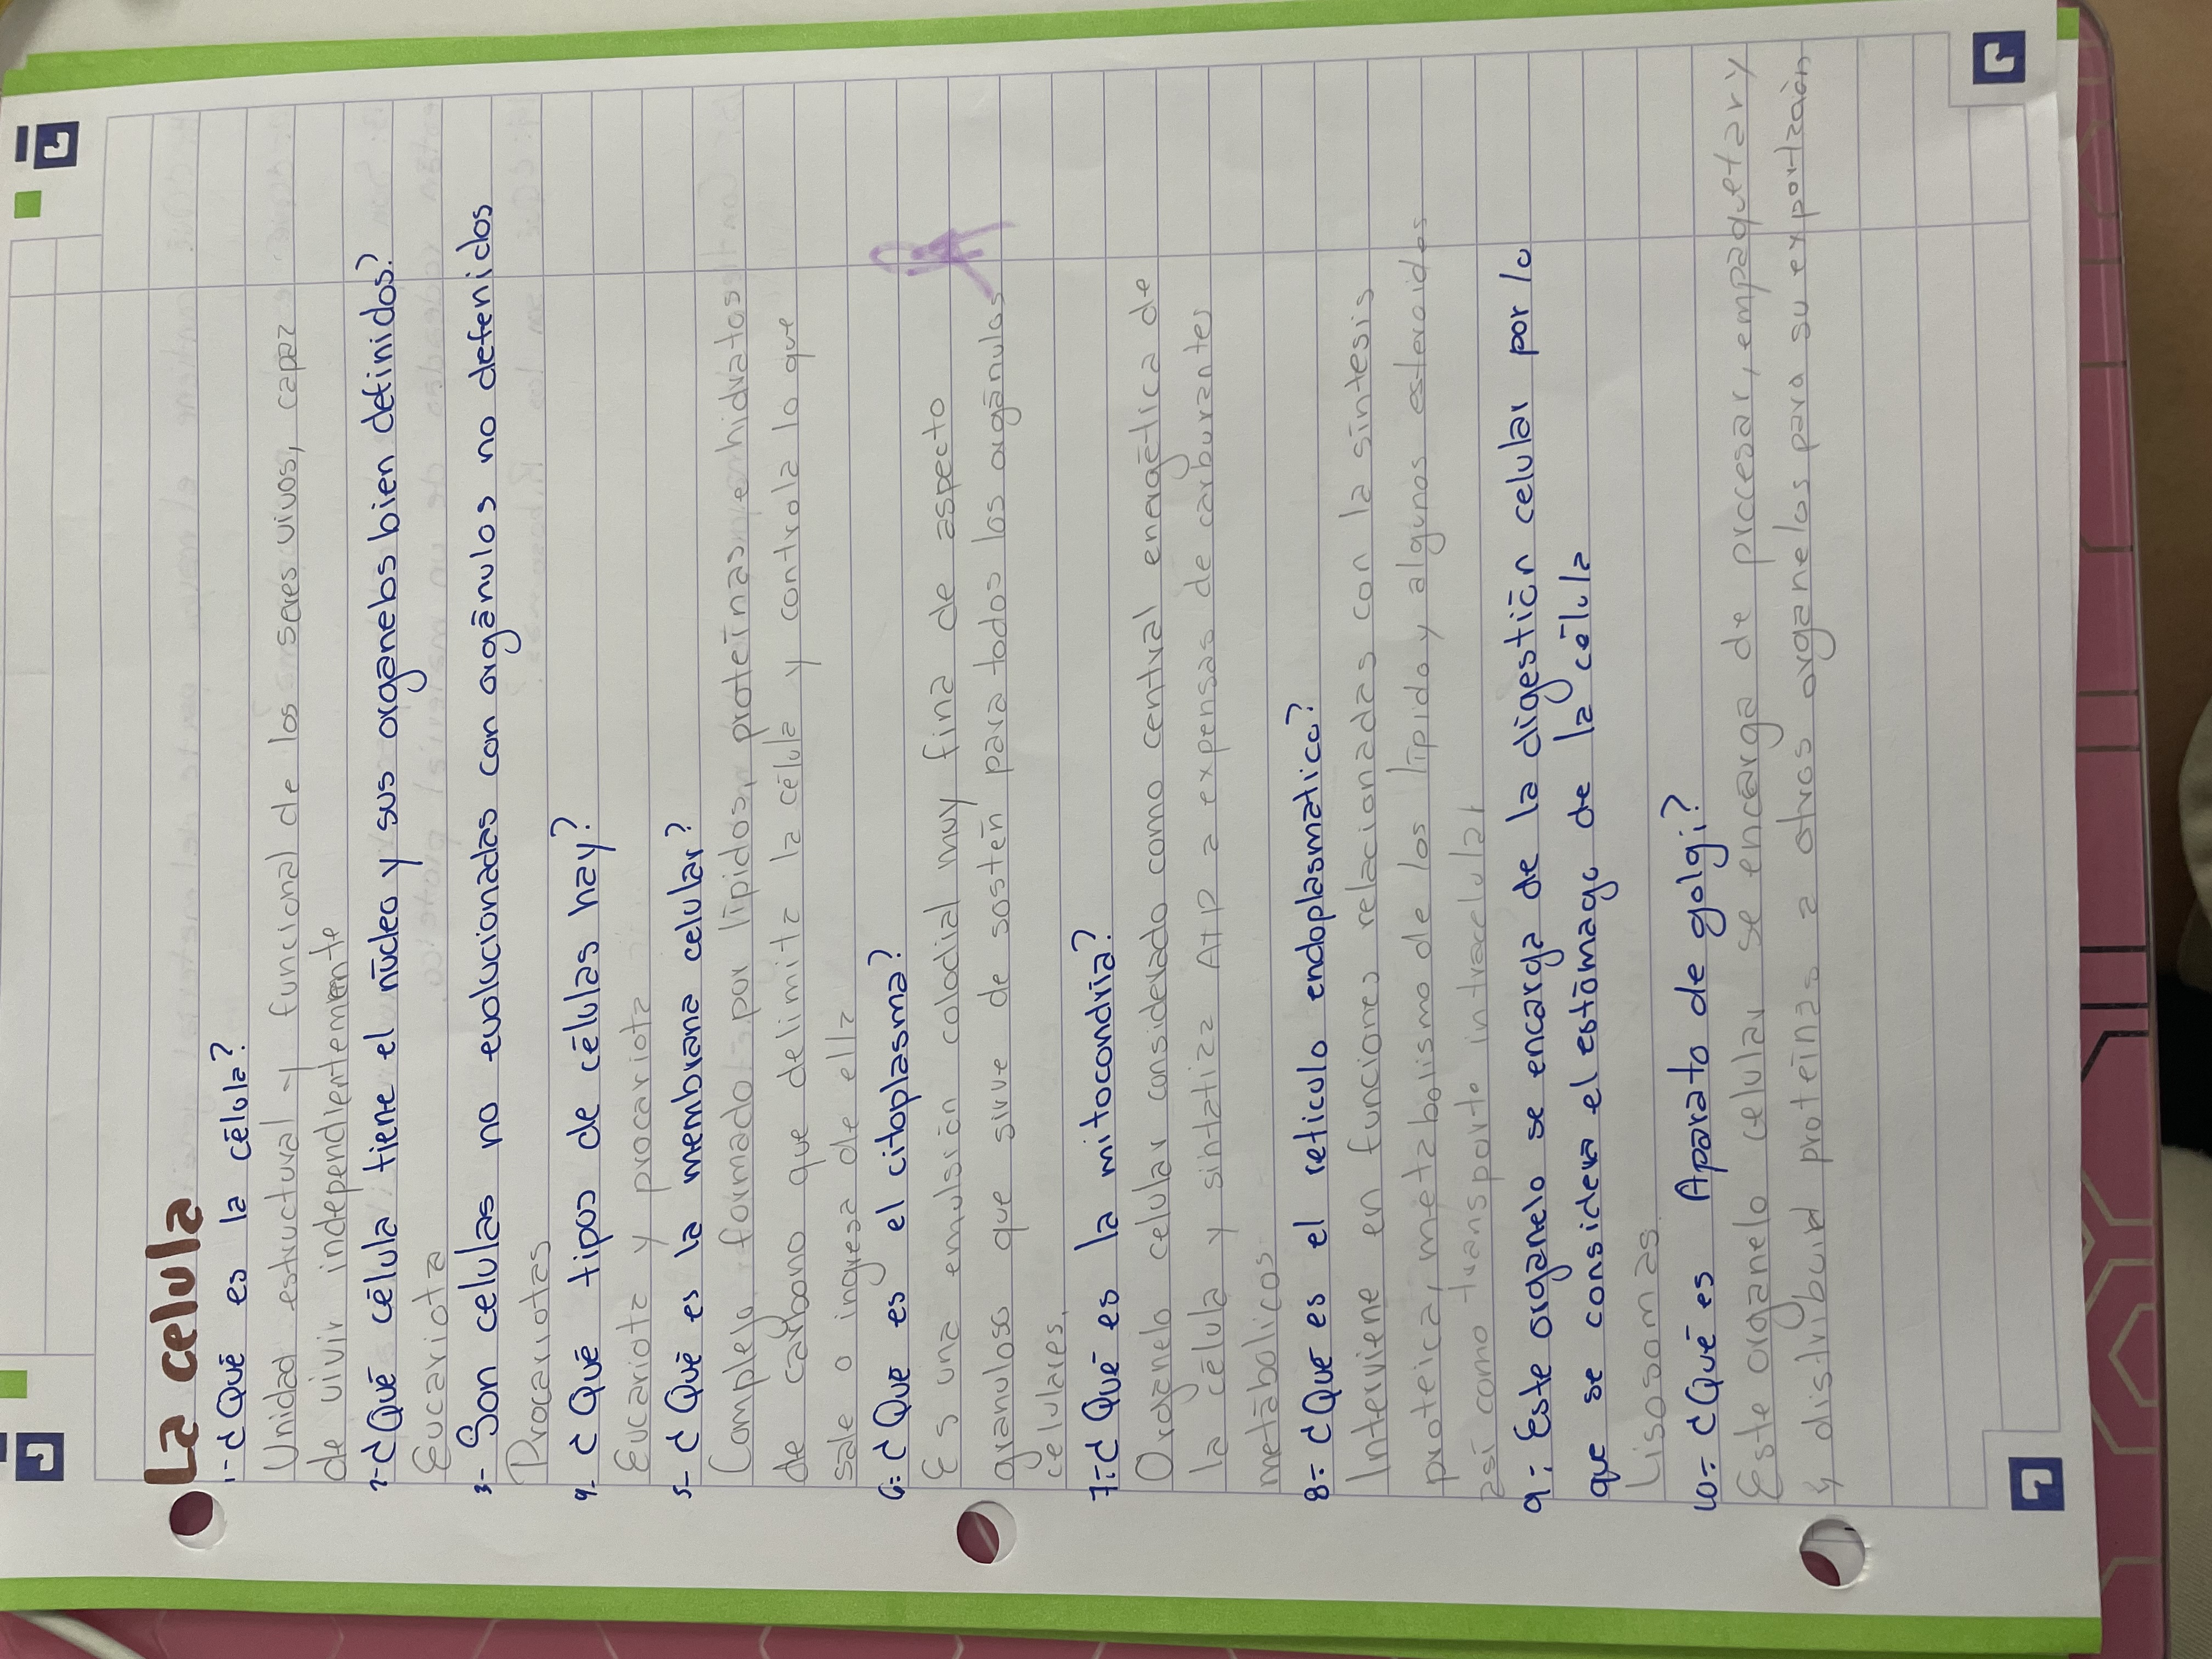 La celula
1-¿Qué es la célula?
Unidad estructural y funcional de los seres vivos, capaz
de vivir independientemente
2-¿Qué célula tiene el núcleo y sus organelos bien definidos?
Eucariota
3- Son celulas no evolucionadas con orgánulos no defenidos
Procariotas
4- ¿Qué tipos de células hay?
Eucariota y procariota
5-¿Qué es la membrana celular?
Complejo formado por lípidos, proteínas e hidratos
de carbono que delimita la célula y controla lo que
sale o ingresa de ella
6-¿Que es el citoplasma?
Es una emulsión colodial muy fina de aspecto
granuloso que sive de sostén para todos los orgánulos
celulares.
7-¿Qué es la mitocondria?
Organelo celular considerado como central energética de
la célula y sintatiza ATP a expensas de carburantes
metábolicos
8-¿Que es el retículo endoplasmatico?
Interviene en funciones relacionadas con la síntesis
proteica, metabolismo de los lípido y algunos esteroides
así como transporto intracelular
9-Este organelo se encarga de la digestión celular por lo
que se considera el estómago de la célula
Lisosomas
10-¿Qué es Aparato de golgi?
Este organelo celular se encarga de procesar, empaquetar y
y distribuir proteínas a otros organelos para su exportación